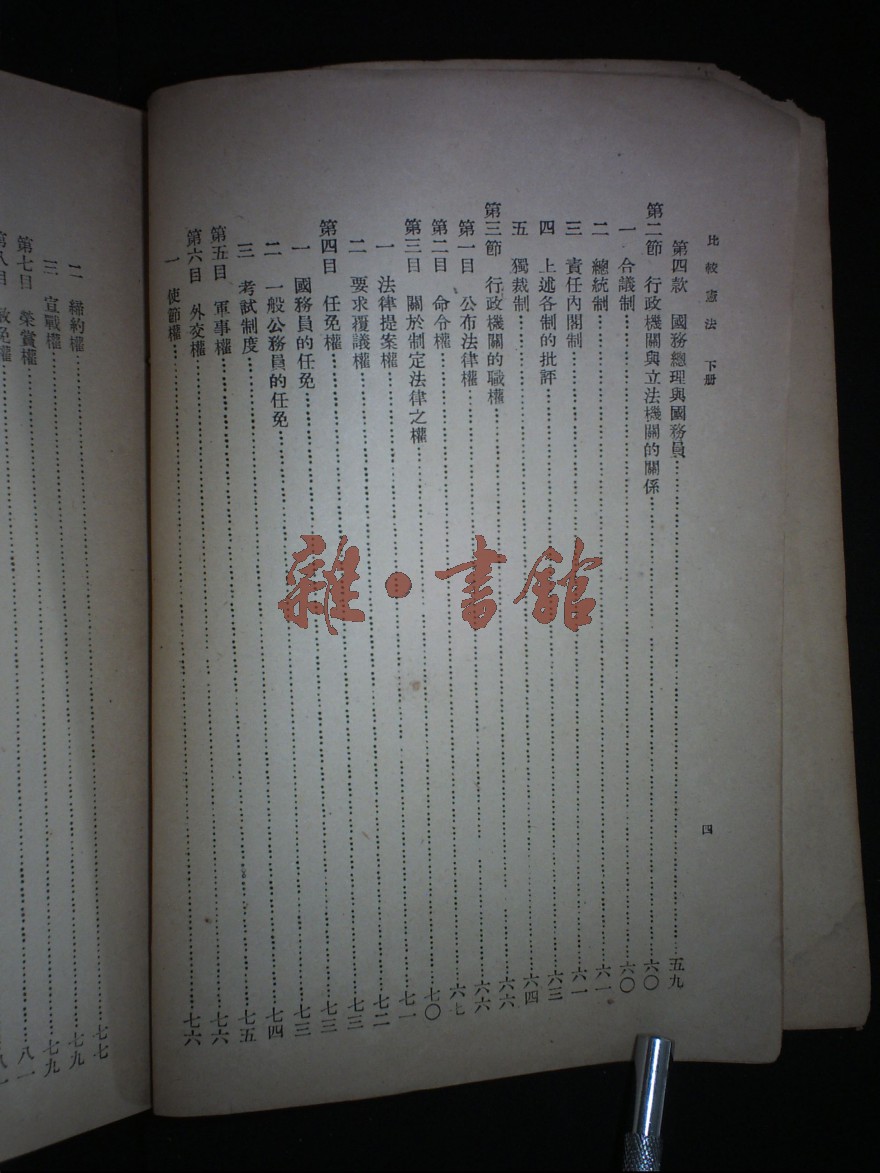 比較憲法 下册
四
第四款 國務總理與國務員……五九
第二節 行政機關與立法機關的關係……六〇
一 合議制……六〇
二 總統制……六一
三 責任內閣制……六一
四 上述各制的批評……六三
五 獨裁制……六四
第三節 行政機關的職權……六六
第一目 公布法律權……六六
第二目 命令權……六七
第三目 關於制定法律之權……七〇
一 法律提案權……七一
二 要求覆議權……七二
第四目 任免權……七三
一 國務員的任免……七三
二 一般公務員的任免……七三
三 考試制度……七四
第五目 軍事權……七五
第六目 外交權……七六
一 使節權……七六
二 締約權……七七
三 宣戰權……七九
第七目 榮賞權……七九
第八目 赦免權……八一
雜·書館